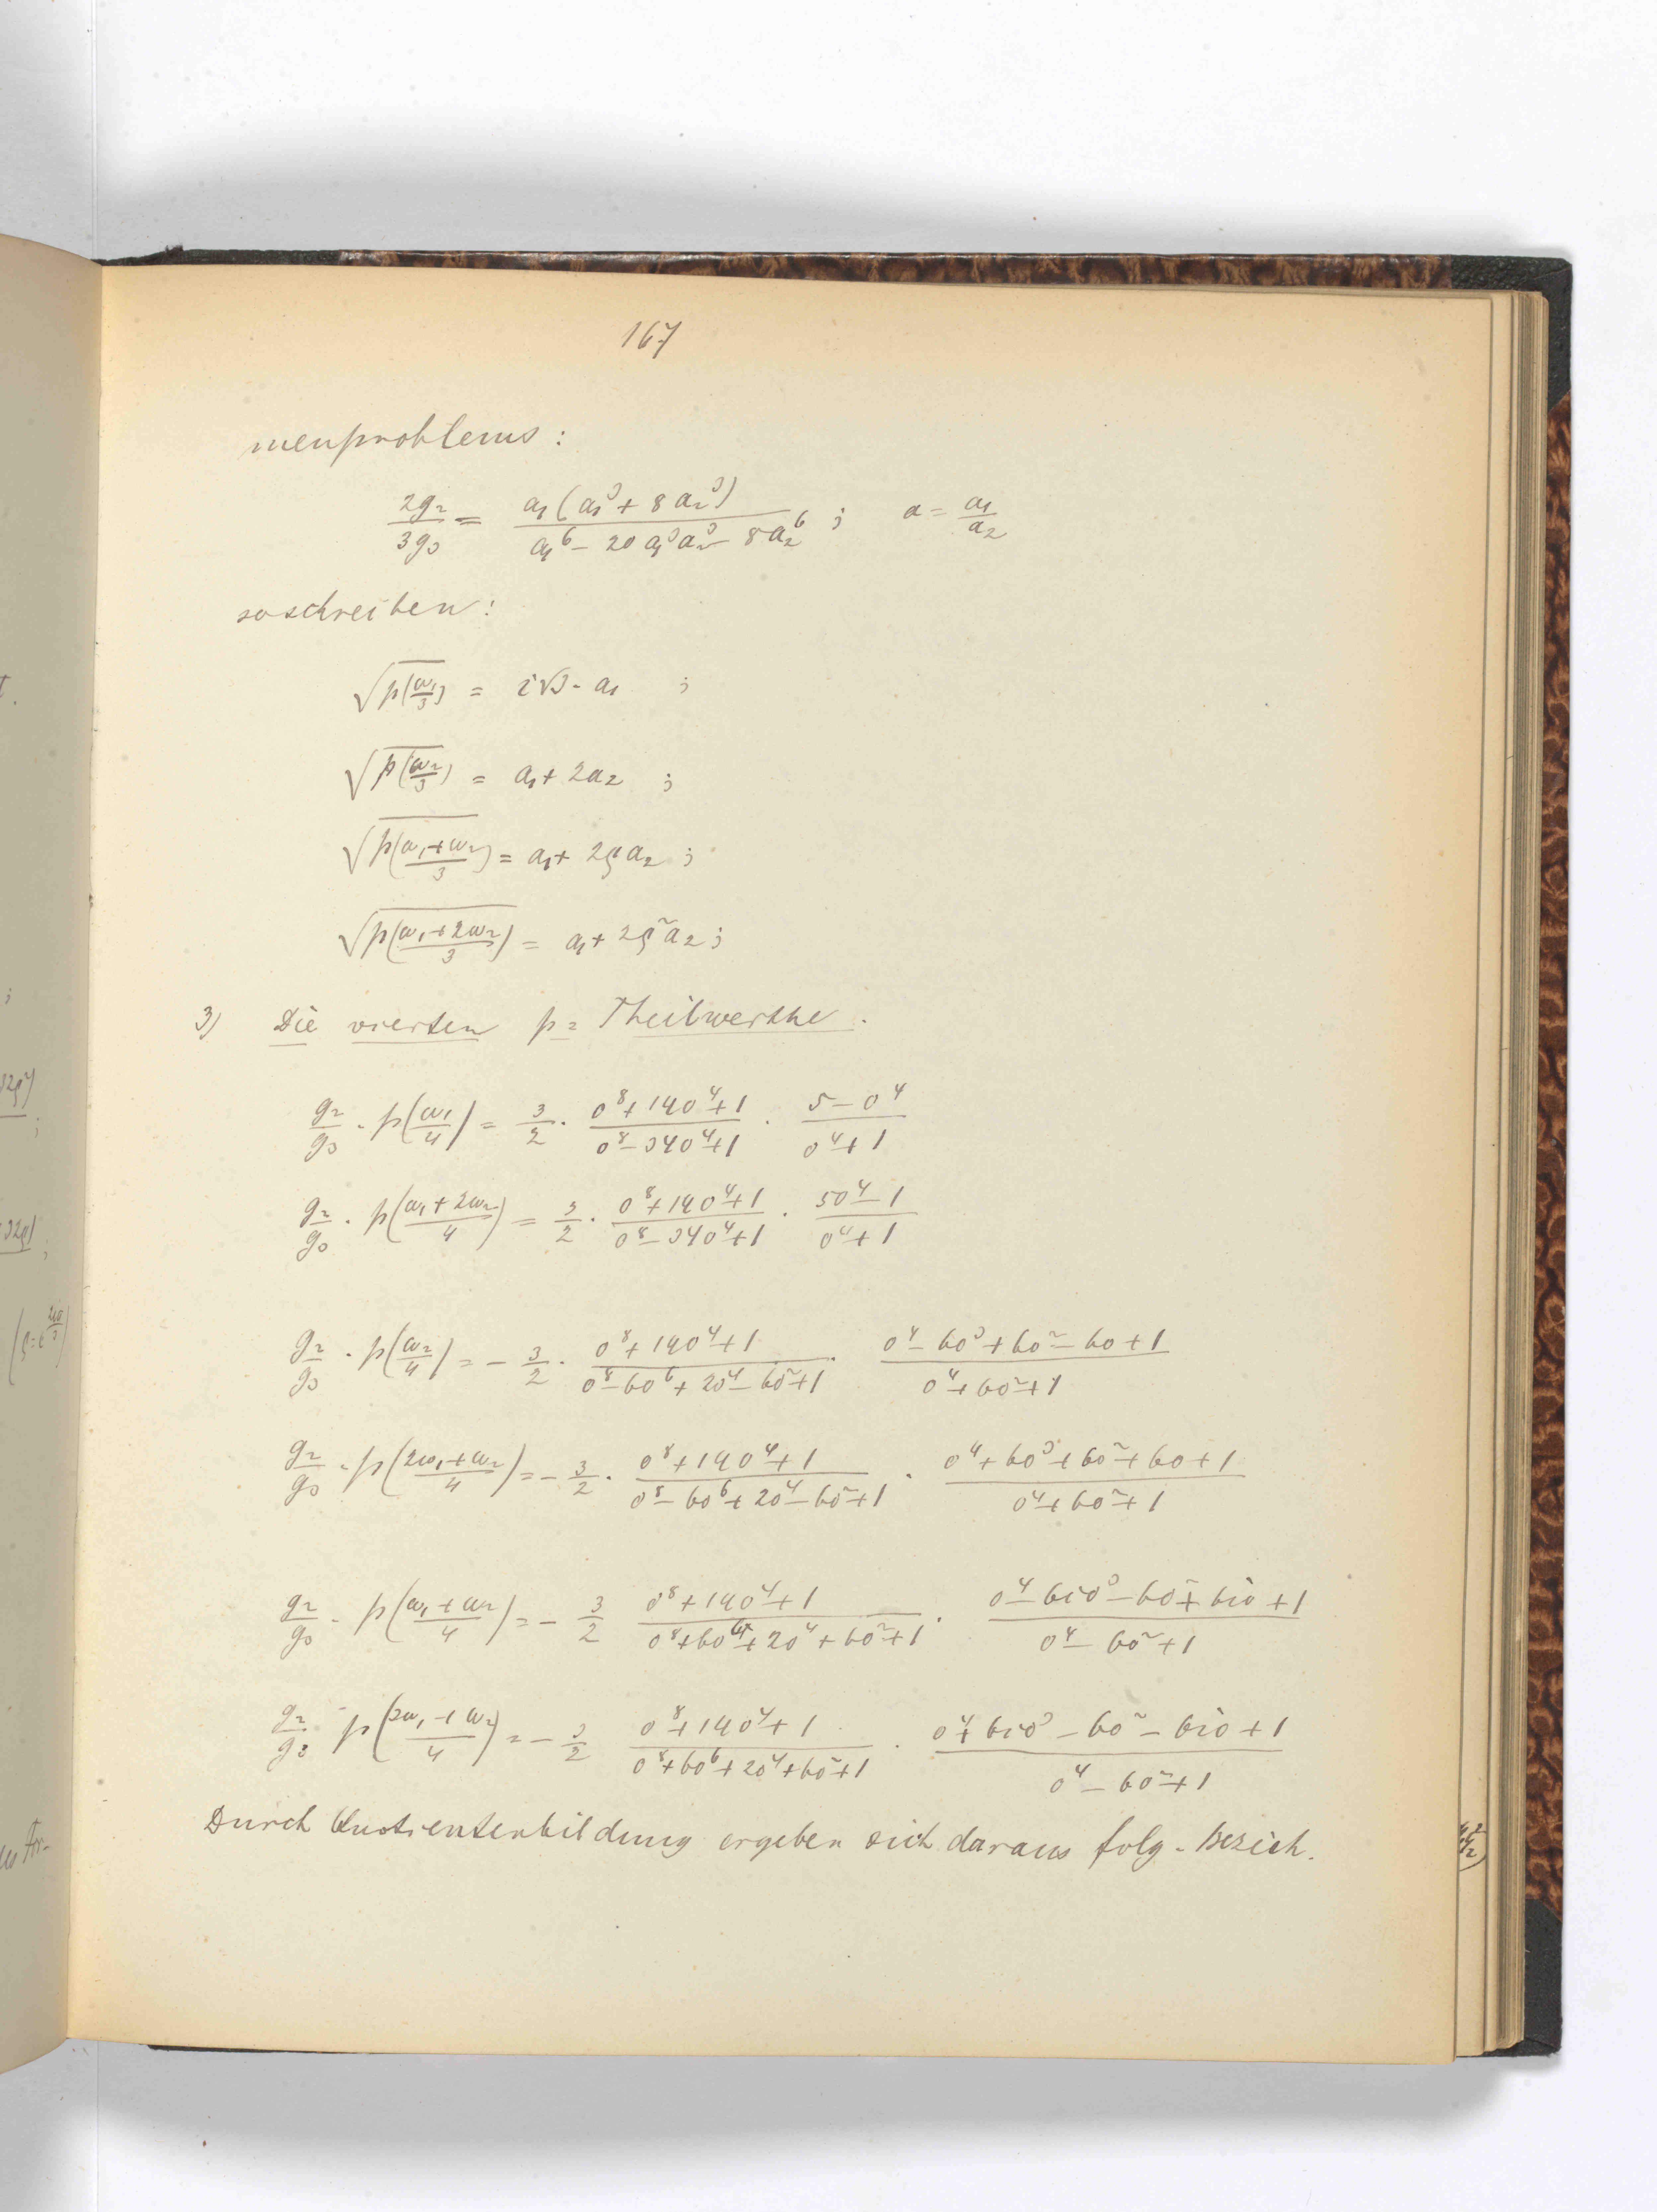 167
menproblems:
2g₂/3g₃ = a₁(a₁³ + 8a₂³)/(a₁⁶ – 20a₁³a₂³ – 8a₂⁶) ; a = a₁/a₂
so schreiben:
√p(ω₁/3) = i√3 · a₁ ;
√p(ω₂/3) = a₁ + 2a₂ ;
√p((ω₁+ω₂)/3) = a₁ + 2ϱa₂ ;
√p((ω₁+2ω₂)/3) = a₁ + 2ϱ²a₂ ;
3) Die vierten p = Theilwerthe.
g₂/g₃ · p(ω₁/4) = 3/2 · (o⁸+14o⁴+1)/(o⁸–34o⁴+1) · (5–o⁴)/(o⁴+1)
g₂/g₃ · p((ω₁+2ω₂)/4) = 3/2 · (o⁸+14o⁴+1)/(o⁸–34o⁴+1) · (5o⁴–1)/(o⁴+1)
g₂/g₃ · p(ω₂/4) = – 3/2 · (o⁸+14o⁴+1)/(o⁸–6o⁶+2o⁴–6o²+1) · (o⁴–6o³+6o²–6o+1)/(o⁴+6o²+1)
g₂/g₃ · p((2ω₁+ω₂)/4) = – 3/2 · (o⁸+14o⁴+1)/(o⁸–6o⁶+2o⁴–6o²+1) · (o⁴+6o³+6o²+6o+1)/(o⁴+6o²+1)
g₂/g₃ · p((ω₁+ω₂)/4) = – 3/2 (o⁸+14o⁴+1)/(o⁸+6o⁶+2o⁴+6o²+1) · (o⁴–6io³–6o²+6io+1)/(o⁴–6o²+1)
g₂/g₃ · p((3ω₁+ω₂)/4) = – 3/2 (o⁸+14o⁴+1)/(o⁸+6o⁶+2o⁴+6o²+1) · (o⁴+6io³–6o²–6io+1)/(o⁴–6o²+1)
Durch Quotientenbildung ergeben sich daraus folg. Bezieh.